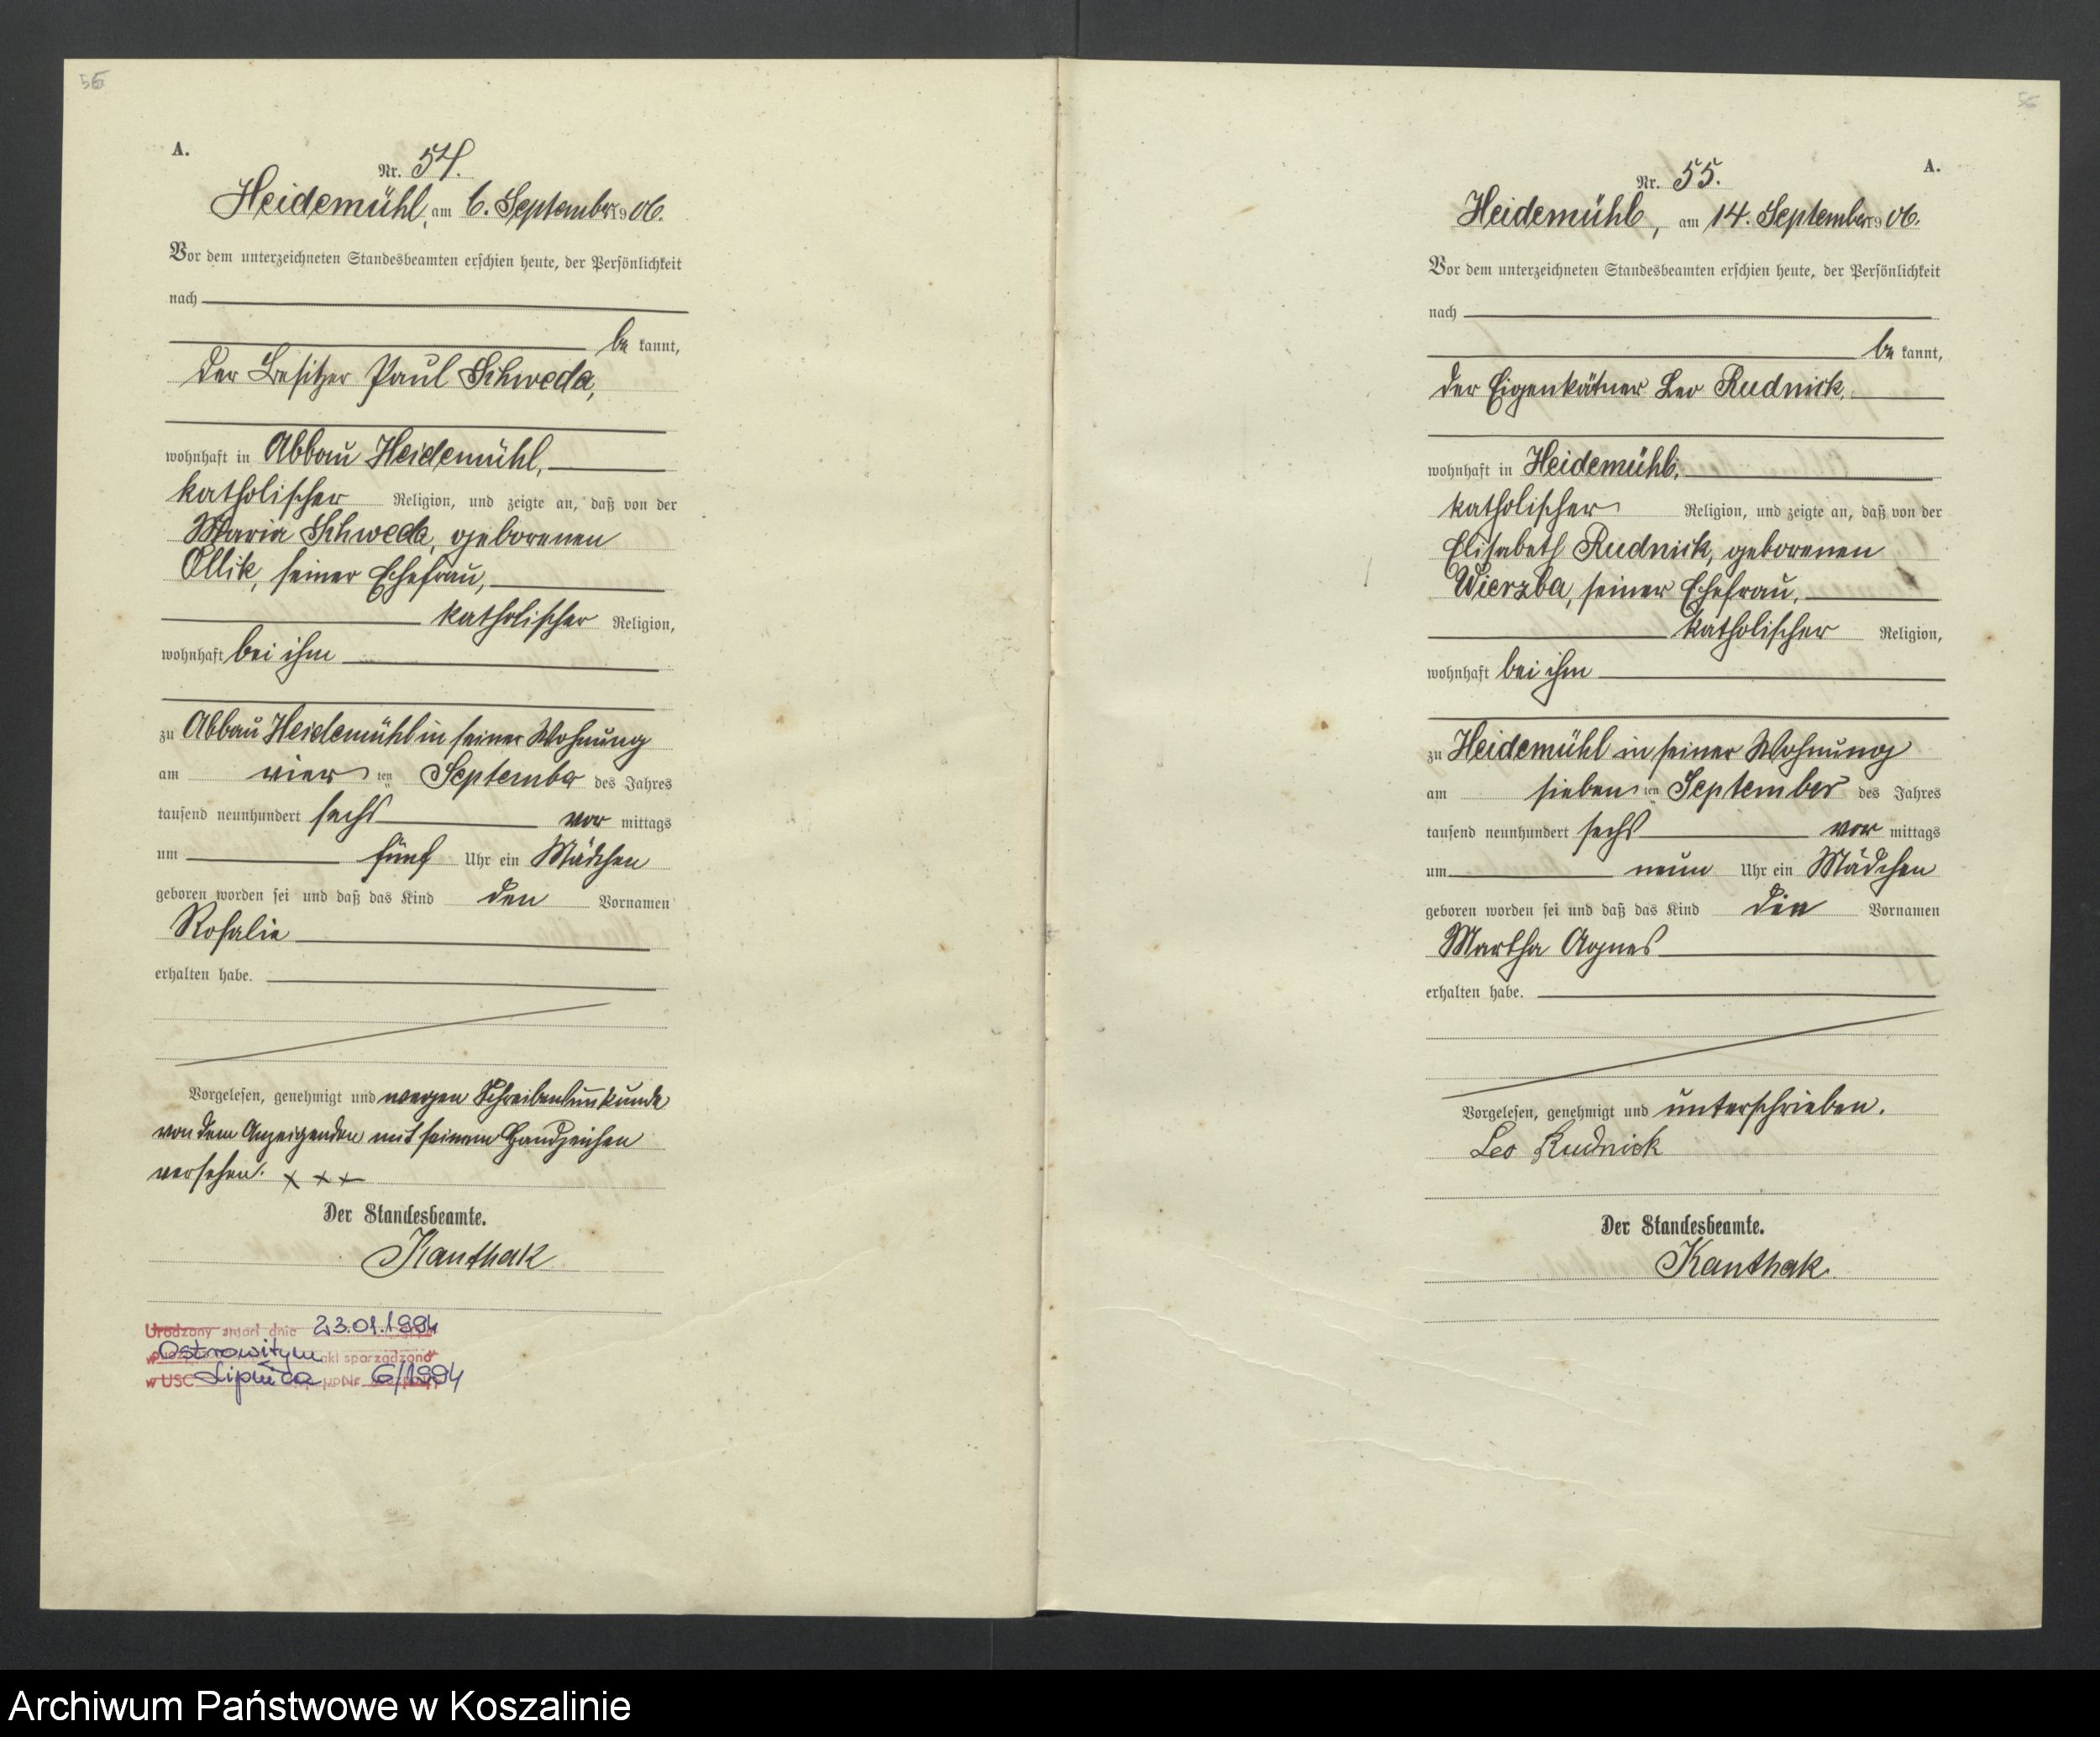 56
A.
Nr. 54.
Heidemühl, am 6. September 1906.
Vor dem unterzeichneten Standesbeamten erschien heute, der Persönlichkeit
nach
be kannt,
der Besitzer Paul Schweda,
wohnhaft in Abbau Heidemühl,
katholischer Religion, und zeigte an, daß von der
Maria Schweda, geborenen
Ollik, seiner Ehefrau,
katholischer Religion,
wohnhaft bei ihm
zu Abbau Heidemühl in seiner Wohnung
am vier ten September des Jahres
tausend neunhundert sechs vor mittags
um fünf Uhr ein Mädchen
geboren worden sei und daß das Kind den Vornamen
Rosalie
erhalten habe.
Vorgelesen, genehmigt und wegen Schreibensunkunde
von dem Anzeigenden mit seinem Handzeichen
versehen. x x x
Der Standesbeamte.
Kanthak
Urodzony zmarł dnia 23.01.1994
w Ostrowitym akt sporządzono
w USC Lipnica Nr 6/1994
A.
Nr. 55.
Heidemühl, am 14. September 1906.
Vor dem unterzeichneten Standesbeamten erschien heute, der Persönlichkeit
nach
be kannt,
der Eigenkätner Leo Rudnick,
wohnhaft in Heidemühl,
katholischer Religion, und zeigte an, daß von der
Elisabeth Rudnick, geborenen
Wierzba, seiner Ehefrau,
katholischer Religion,
wohnhaft bei ihm
zu Heidemühl in seiner Wohnung
am sieben ten September des Jahres
tausend neunhundert sechs vor mittags
um neun Uhr ein Mädchen
geboren worden sei und daß das Kind die Vornamen
Martha Agnes
erhalten habe.
Vorgelesen, genehmigt und unterschrieben.
Leo Rudnick
Der Standesbeamte.
Kanthak
Archiwum Państwowe w Koszalinie